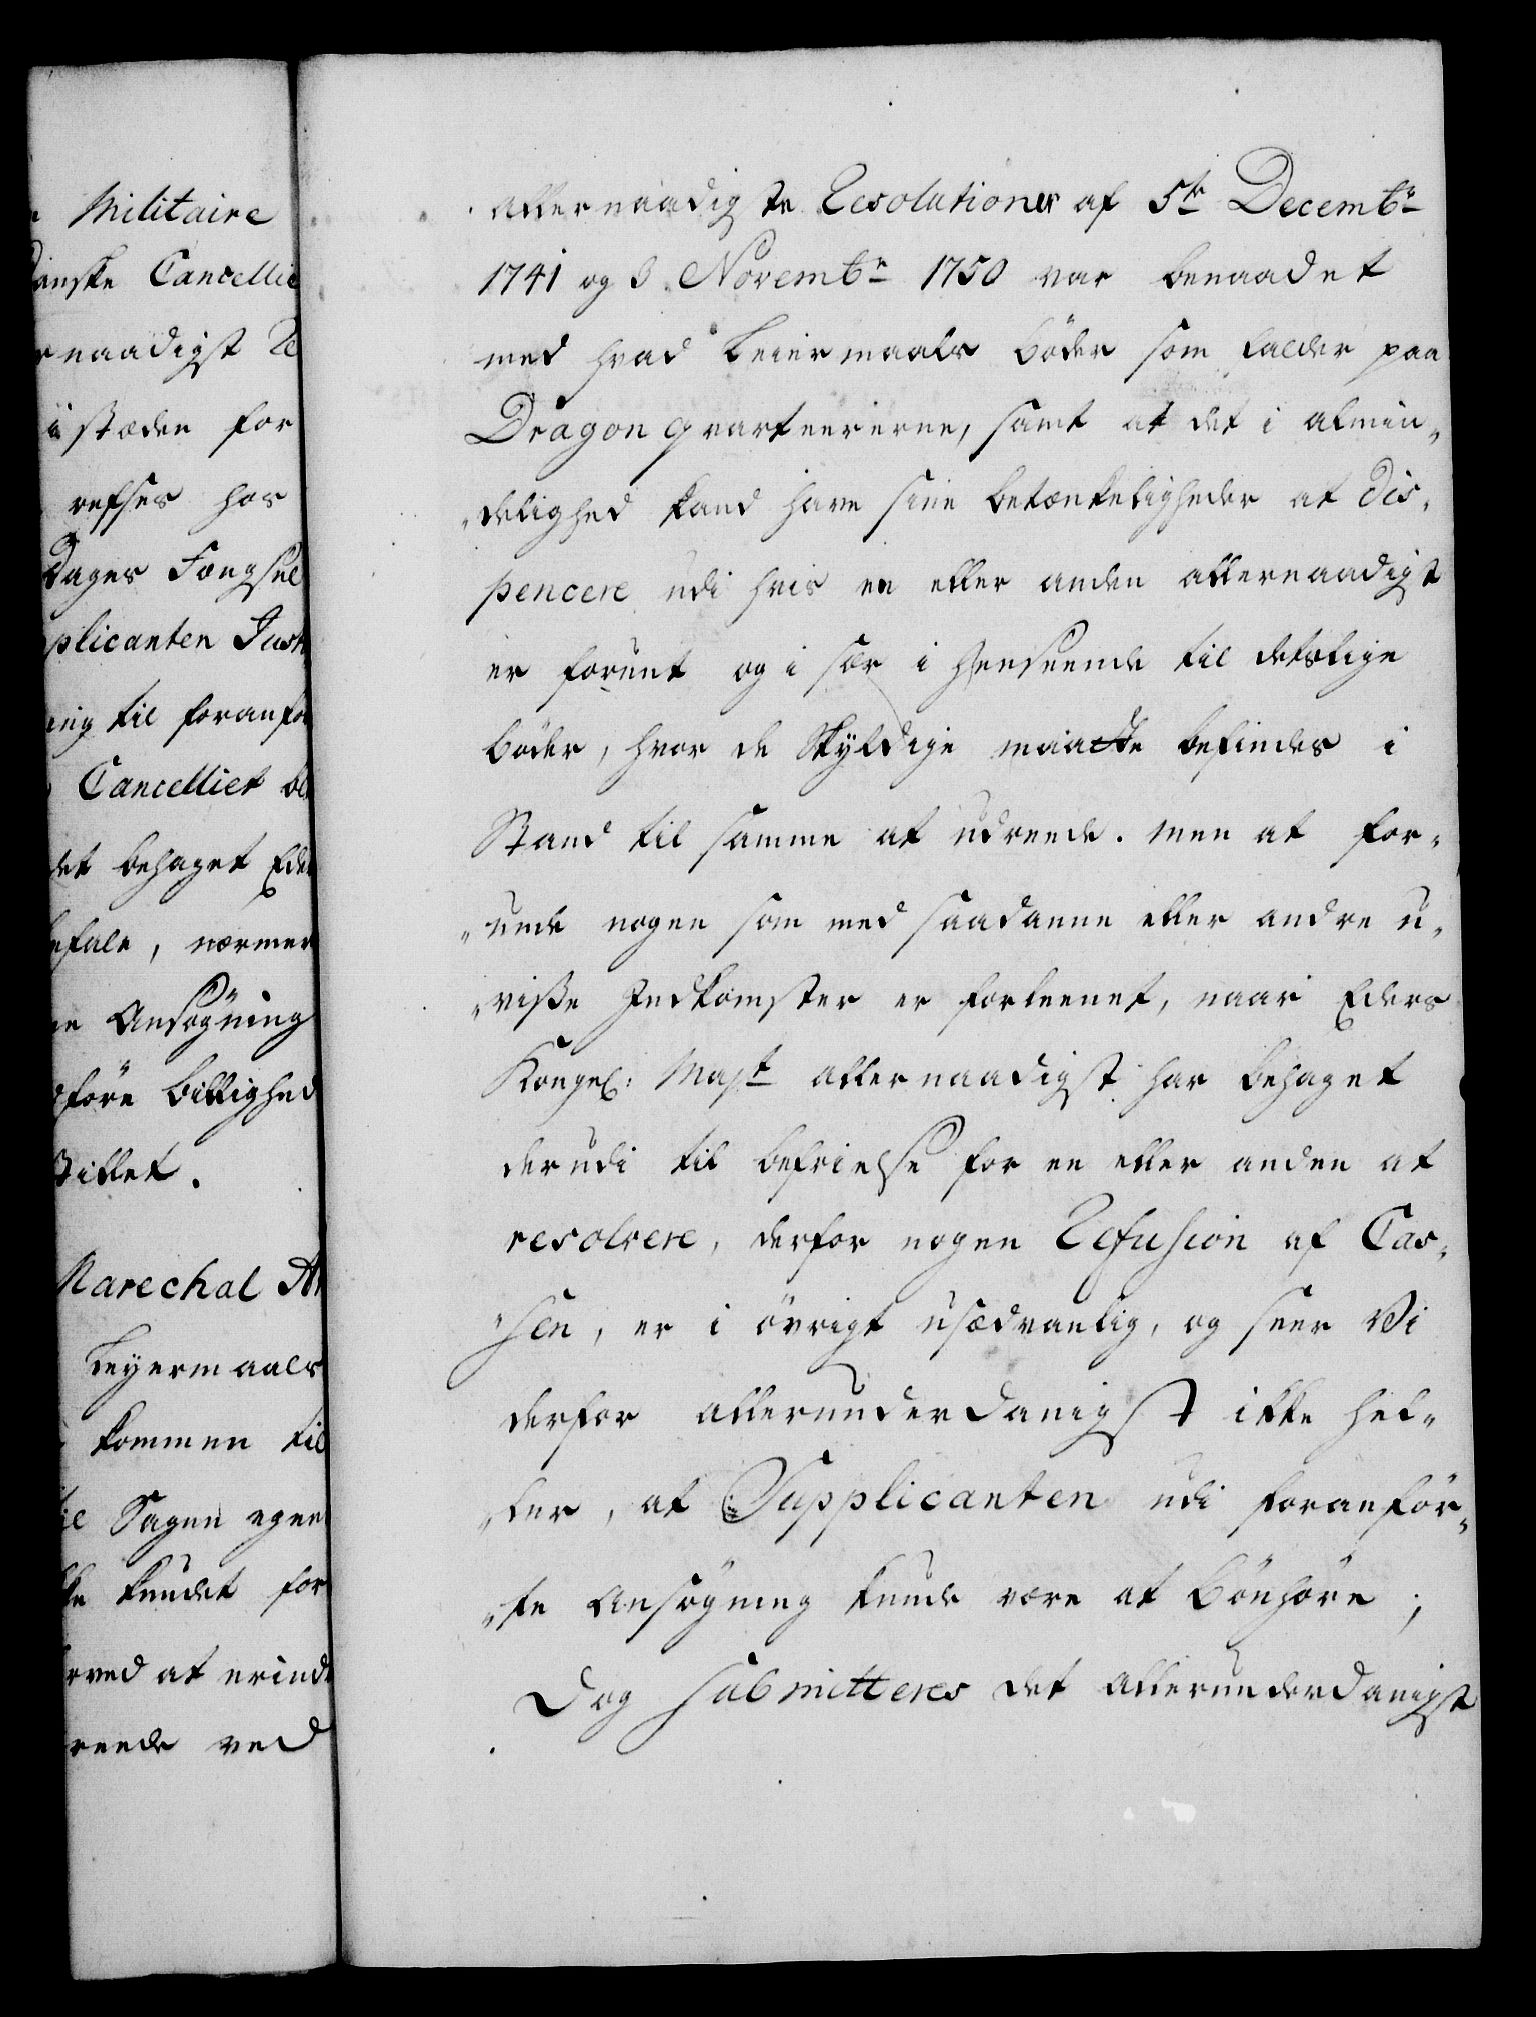 Militaire
Danske Cancellie
naadigst Re
i stæden for
refses hos
Dages Fængsel
plicanten Just
ing til foranfø
Cancelliet be
det behaget Ede
befale, nærmer
Ansøgning
føre billighed
Billet.
Marechal A
Leyermaals
kommen til
Sagen egen
kundet for
ved at erind
reede ved
allernaadigste Resolutioner af 5te Decembr
1741 og 3. Novembr 1750 var benaadet
med hvad Leiermaals bøder som falder paa
Dragon qvarteererne, samt at det i almin„
„delighed kand have sine betænkeligheder at dis„
pencere udi hvis en eller anden allernaadigst
er forunt og i sær i Henseende til deslige
bøder, hvor de Skyldige maatte befindes i
Stand til samme at udreede. men at for„
„unde nogen som med saadanne eller andre u„
„visse Indkomster er forleenet, naar Eders
Kongel: Mayt allernaadigst har behaget
derudi til befrielse for en eller anden at
resolvere, derfor nogen Refusion af Cas„
„sen, er i øvrigt usædvanlig, og seer Vi
derfor allerunderdanigst ikke hel„
„ler, at Supplicanten udi foranfør„
„te Ansøgning kunde være at bønhøre;
Dog submitteres det allerunderdanigst